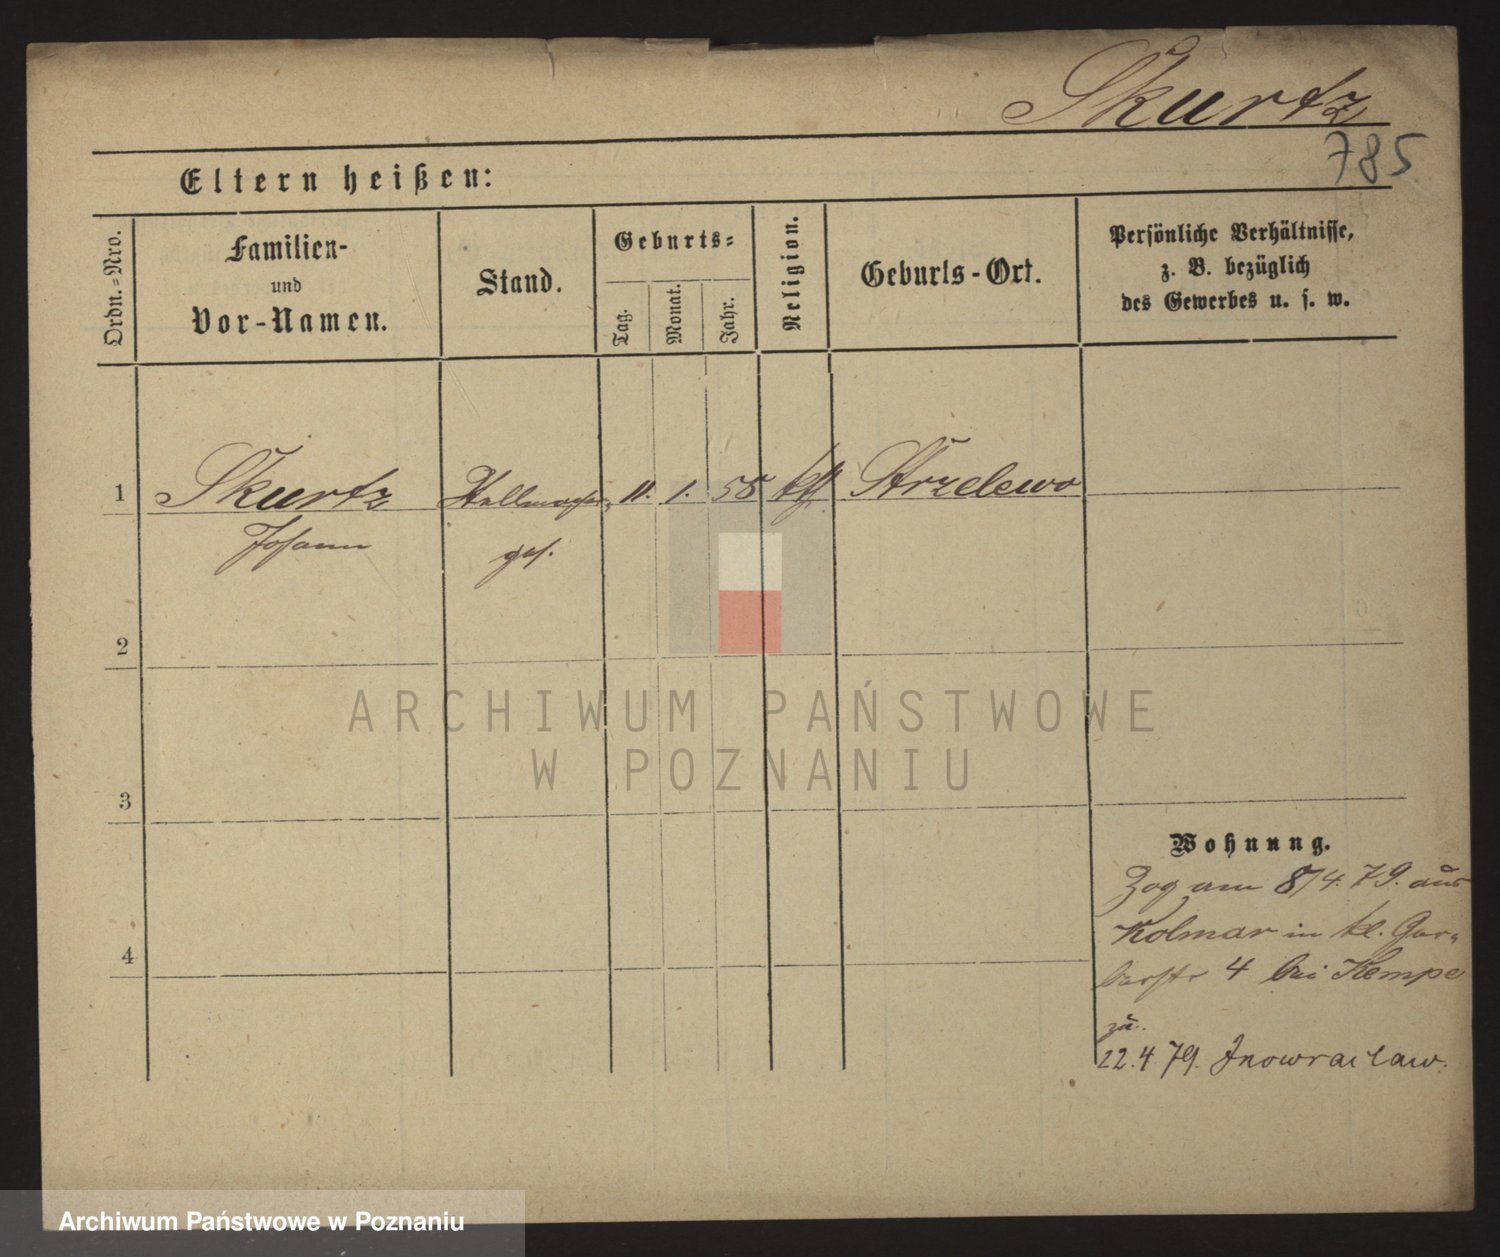 Skurtz
785
Eltern heißen:
Ordn.-Nro.
Familien-
und
Vor-Namen.
Stand.
Geburts-
Tag.
Monat.
Jahr.
Religion.
Geburts-Ort.
Persönliche Verhältnisse,
z. B. bezüglich
des Gewerbes u. s. w.
1 Skurtz Stellmacher- 11. 1. 58 kth Strzelewo
Johann ges.
2
3
4
Wohnung.
Zog am 8/4. 79. aus
Kolmar in kl. Ger-
berstr 4 bei Kempe
zu.
22.4 79. Inowraclaw.
ARCHIWUM PAŃSTWOWE
W POZNANIU
Archiwum Państwowe w Poznaniu